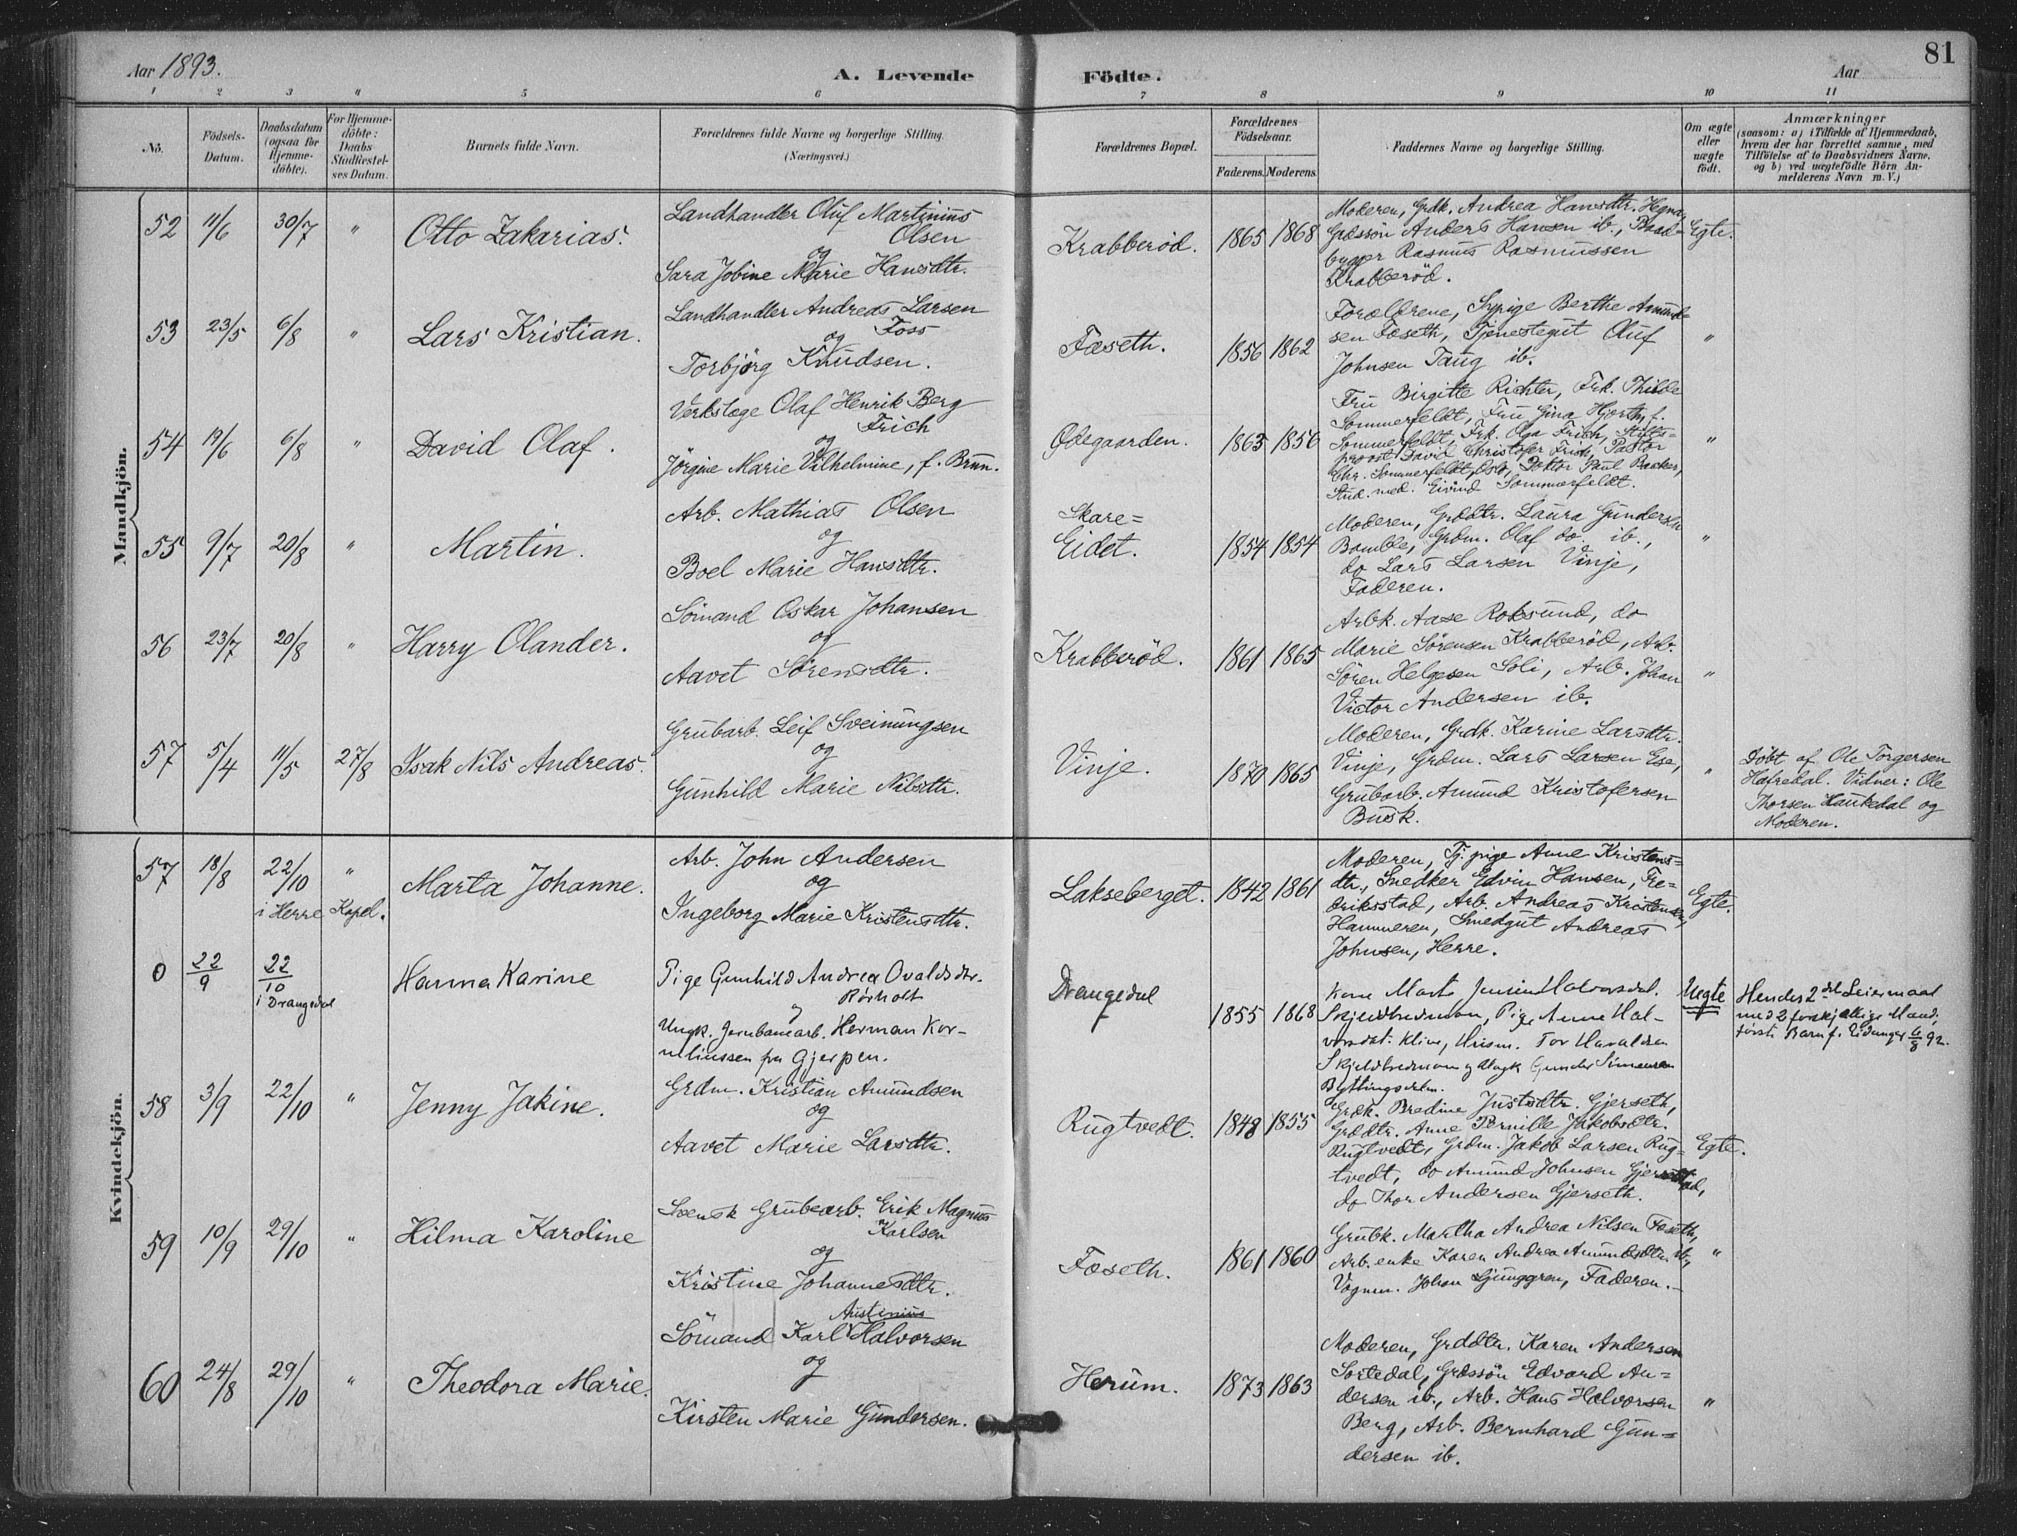 Aar 1893.
A. Levende Födte.
Aar
81
1 2 3 " 5 6 7 8 9 10 11
No.
Födsels-
Datum.
Daabsdatum
(ogsaa for
Hjemme-
döbte).
For Hjemme-
döbte:
Daabs
Stadfæstel-
ses Datum.
Barnets fulde Navn.
Forældrenes fulde Navne og borgerlige Stilling.
(Næringsvei.)
Forældrenes Bopæl.
Forældrenes
Födselsaar.
Faderens. Moderens.
Faddernes Navne og borgerlige Stilling.
Om ægte
eller
uægte
födt.
Anmærkninger
(saasom: a) i Tilfælde af Hjemmedaab,
hvem der har forrettet samme, med
Tilföielse af to Daabsvidners Navne,
og b) ved uægtefödte Börn An-
melderens Navn m. V.)
Mandkjön.
52 11/6 30/7 " Otto Zakarias.
Landhandler Oluf Martinius
Olsen
og
Sara Jobine Marie Hansdtr.
Krabberød. 1865 1868
Moderen, Grdk. Andrea Hansdtr. Hegna,
Grdssøn Anders Hansen ib., Baad=
bygger Rasmus Rasmussen
Krabberød.
Egte.
53 23/5 6/8 " Lars Kristian.
Landhandler Andreas Larsen
Foss
og
Torbjörg Knudsen.
Fæseth. 1856 1862
Forældrene, Sypige Berthe Amund=
sen Fæseth, Tjenestegut Oluf
Johnsen Taug ib.
"
54 19/6 6/8 " David Olaf.
Verkslæge Olaf Henrik Berg
Frich
og
Jörgine Marie Vilhelmine, f. Brun.
Ødegaarden. 1863 1856
Fru Birgitte Richter, Frk. Thilde
Sommerfeldt, Fru Gina Hjorth, f.
Sommerfeldt, Frk. Olga Frich, Stifts=
provst David Christofer Frich, Pastor
Chr. Sommerfeldt, Oslo, Doktor Paul Backer,
Stud. med. Eivind Sommerfeldt.
"
55 9/7 20/8 " Martin.
Arb. Mathias Olsen
og
Boel Marie Hansdtr.
Skare=
Eidet. 1854 1854
Moderen, Grddtr. Laura Gundersen
Bamble, Grdm. Olaf do. ib.,
do Lars Larsen Vinje,
Faderen.
"
56 23/7 20/8 " Harry Olander.
Sömand Oskar Johansen
og
Aavet Sörensdtr.
Krabberød. 1861 1865
Arbk. Aase Roksund, do
Marie Sørensen Krabberød, Arb.
Sören Helgesen Soli, Arb. Johan
Victor Andersen ib.
"
57 5/4 11/5 27/8 Isak Nils Andreas.
Grubarb. Leif Sveinungsen
og
Gunhild Marie Nilsdtr.
Vinje. 1870 1865
Moderen, Grdk. Karine Larsdtr.
Vinje, Grdm. Lars Larsen Ese,
Grubarb. Amund Kristofersen
Busk.
"
Döbt af Ole Torgersen
Hafredal. Vidner: Ole
Thorsen Haukedal og
Moderen.
Kvindekjön.
57 18/8 22/10 "
i Herre Kapel.
Marta Johanne.
Arb. John Andersen
og
Ingeborg Marie Kristensdtr.
Lakseberget. 1842 1861
Moderen, Tj. pige Anne Kristens=
dtr., Snedker Edvin Hansen, Fre=
driksstad, Arb. Andreas Kristensen,
Hammeren, Smedgut Andreas
Johnsen, Herre.
Egte.
0 22/9 22/10
i Drangedal
Hanna Karine
Pige Gunhild Andrea Ovaldsdtr.
Rørholt
og
Ungk. Jernbanearb. Herman Kor-
neliussen fra Gjerpen.
Drangedal 1855 1868
Kone Marte Jensine Halvorsdal.
Skjeldbredmoen, Pige Anne Hal-
vorsdtr. Kline, Husm. Tor Havaldsen
Skjeldbredmoen og Ungk Gunder Simonsen
Byttingsdalm.
Uegte
Hendes 2det Leiermaal
med 2 forskjellige Mænd,
første Barn f. Eidanger 6/8 92.
58 3/9 22/10 " Jenny Jakine.
Grdm. Kristian Amundsen
og
Aavet Marie Larsdtr.
Rugtvedt. 1848 1855
Grdk. Bredine Justsdtr. Gjerseth,
Grddtr. Anne Pernille Jakobsdtr.
Rugtvedt, Grdm. Jakob Larsen Rug=
tvedt, do Amund Johnsen
do Thor Andersen Gjerseth.
Egte.
59 10/9 29/10 " Hilma Karoline
Svensk Grubearb. Erik Magnus
Karlsen
og
Kristine Johannesdtr.
Fæseth. 1861 1860
Grubk. Martha Andrea Nilsen Fæseth,
Arb.enke Karen Andrea Amundsdtr. ib,
Vognm. Johan Ljunggren, Faderen.
"
60 24/8 29/10 " Theodora Marie.
Austinius
Sömand Karl Halvorsen
og
Kirsten Marie Gundersen.
Herum. 1873 1863
Moderen, Grddtr. Karen Andersen
Sortedal, Grdssøn Edvard An=
dersen ib., Arb. Hans Halvorsen
Berg, Arb. Bernhard Gun=
dersen ib.
"